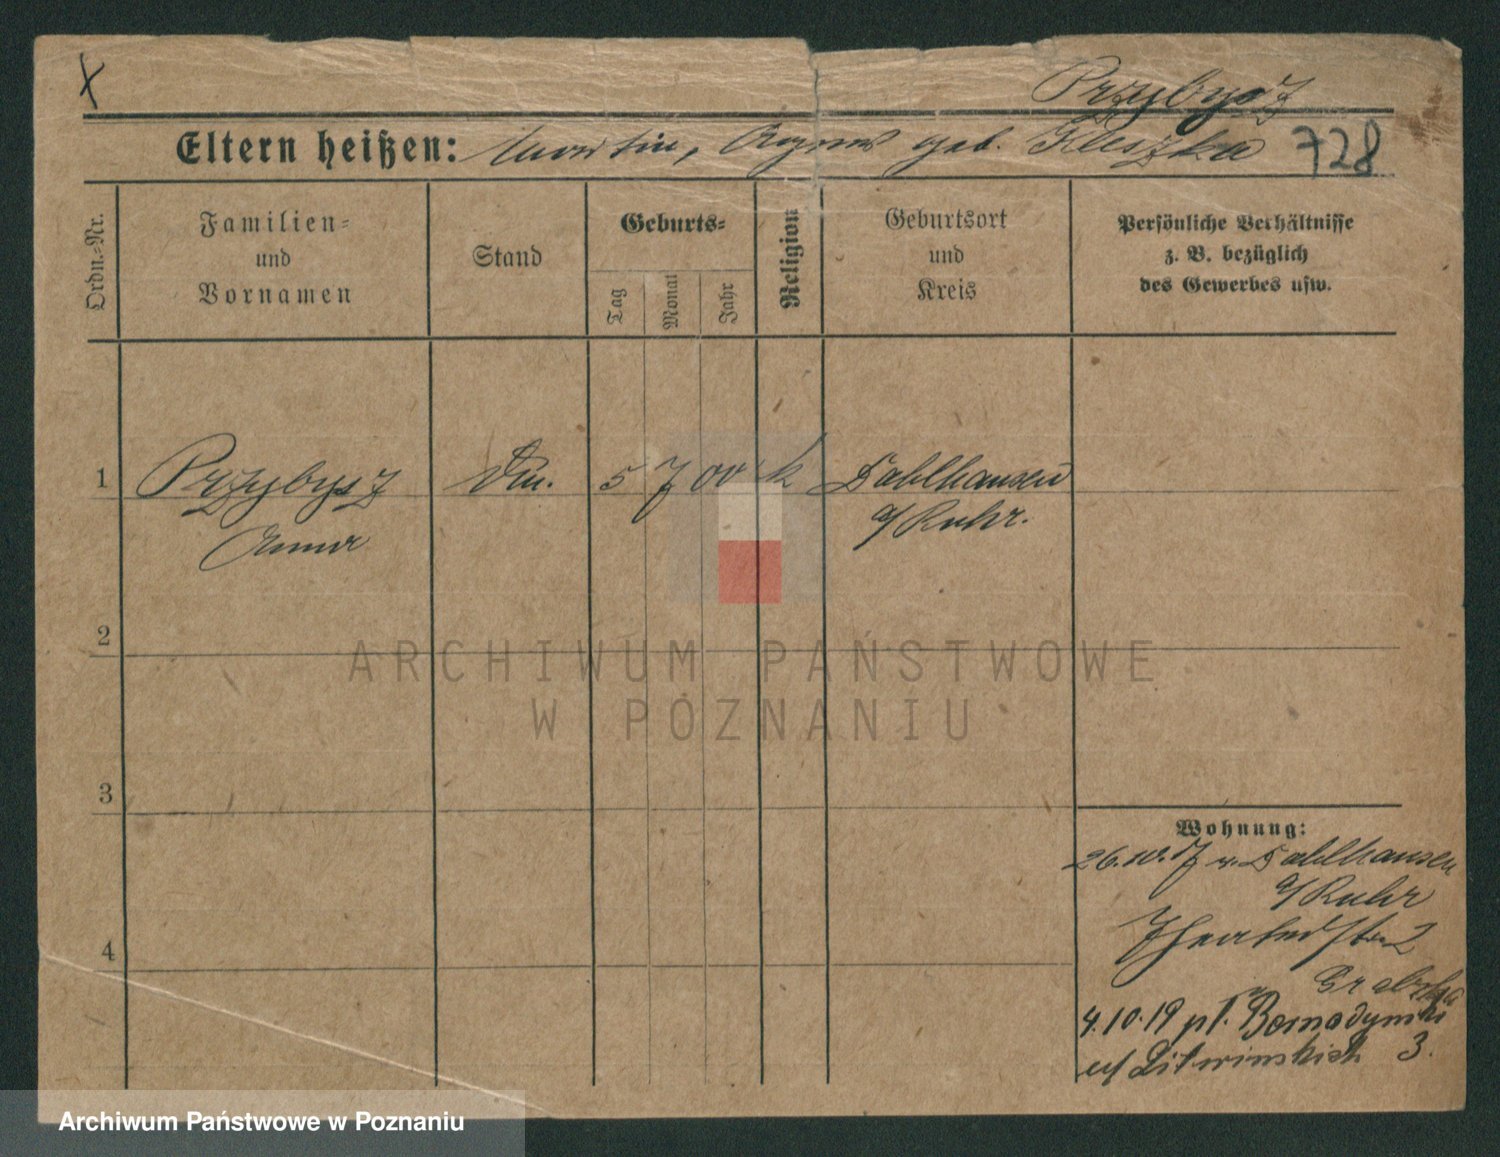 x
Przybysz
Eltern heißen: Martin, Agnes geb. Kleszka 728
Ordn.-Nr.
Familien-
und
Vornamen
Stand
Geburts-
Tag
Monat
Jahr
Religion
Geburtsort
und
Kreis
Persönliche Verhältnisse
z. B. bezüglich
des Gewerbes usw.
1 Przybysz 5 7 00 k Dahlhausen
Anna a/Ruhr.
2
3
4
Wohnung:
Dahlhausen
a/Ruhr
2
Grabska
4.10.19 pt. Bernadynski
ul Litwinskich 3.
ARCHIWUM PAŃSTWOWE
W POZNANIU
Archiwum Państwowe w Poznaniu